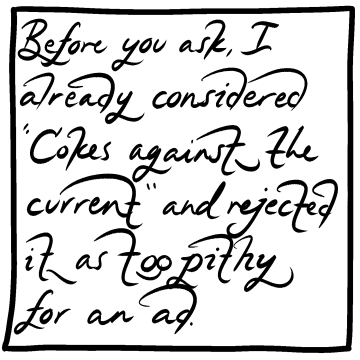 Before you ask, I
already considered
"Cokes against the
current" and rejected
it as too pithy
for an ad.